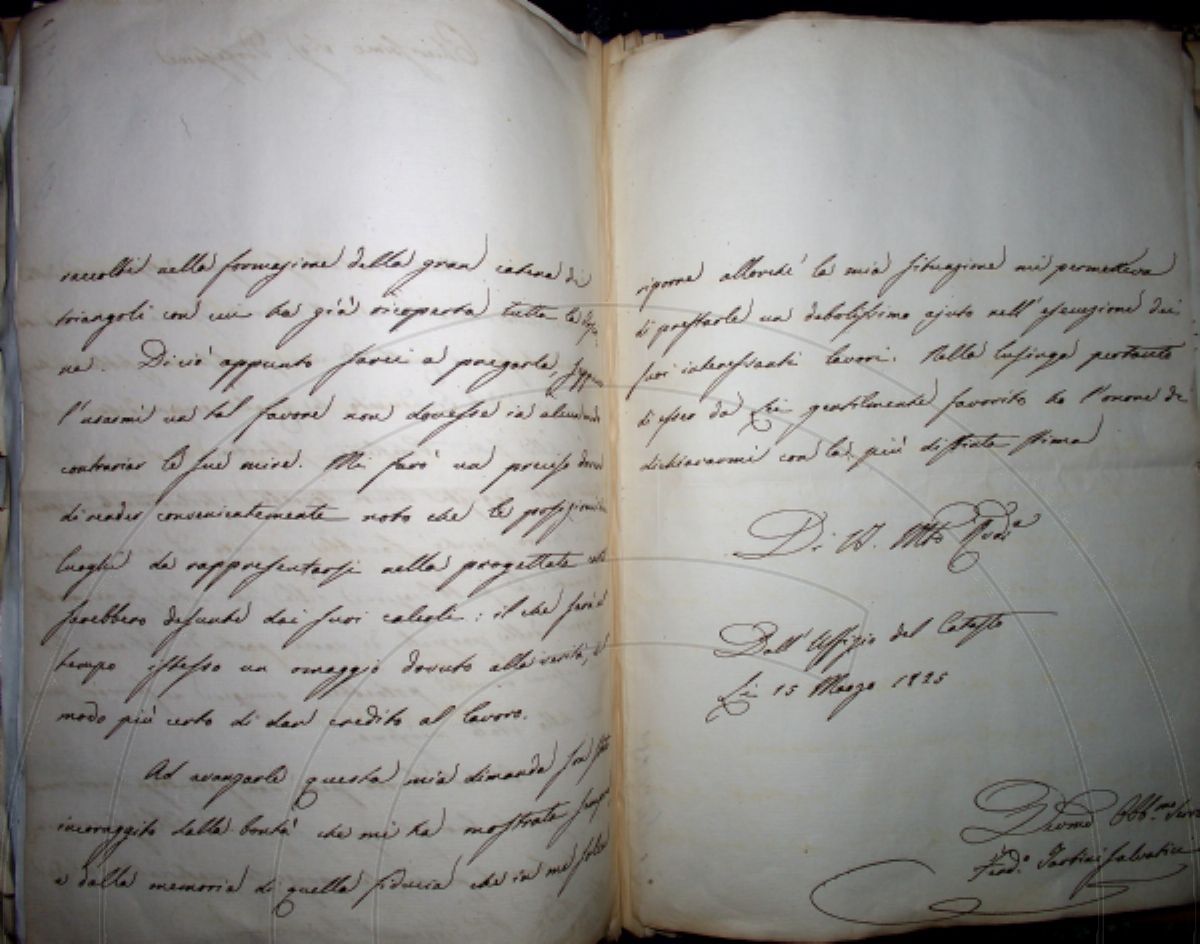 raccolti nella formazione della gran catena di
triangoli con cui ha già ricoperta tutta la
ne. Di ciò appunto sarei a pregarla,
l'usarmi un tal favore non dovesse in alcun modo
contrariar le sue mire. Mi farò un preciso dovere
di render convenientemente noto che le posizioni
luoghi da rappresentarsi nella progettata
sarebbero desunte dai suoi calcoli: il che sarà
tempo istesso un omaggio dovuto alla verità,
modo più certo di dar credito al lavoro.
Ad avanzarle questa mia dimanda son
incoraggito dalla bontà che mi ha mostrata sempre
e dalla memoria di quella fiducia che in me
riporre allorché la mia situazione mi permetteva
di prestarle un debolissimo ajuto nell'esecuzione dei
suoi interessanti lavori. Nella lusinga pertanto
di esser da Lei gentilmente favorito ho l'onore di
dichiararmi con la più distinta stima
Di V.
Dall'Uffizio del Catasto
Li 15 Marzo 1825
Devmo Obbmo Serv
Ferdo Tartini Salvatici